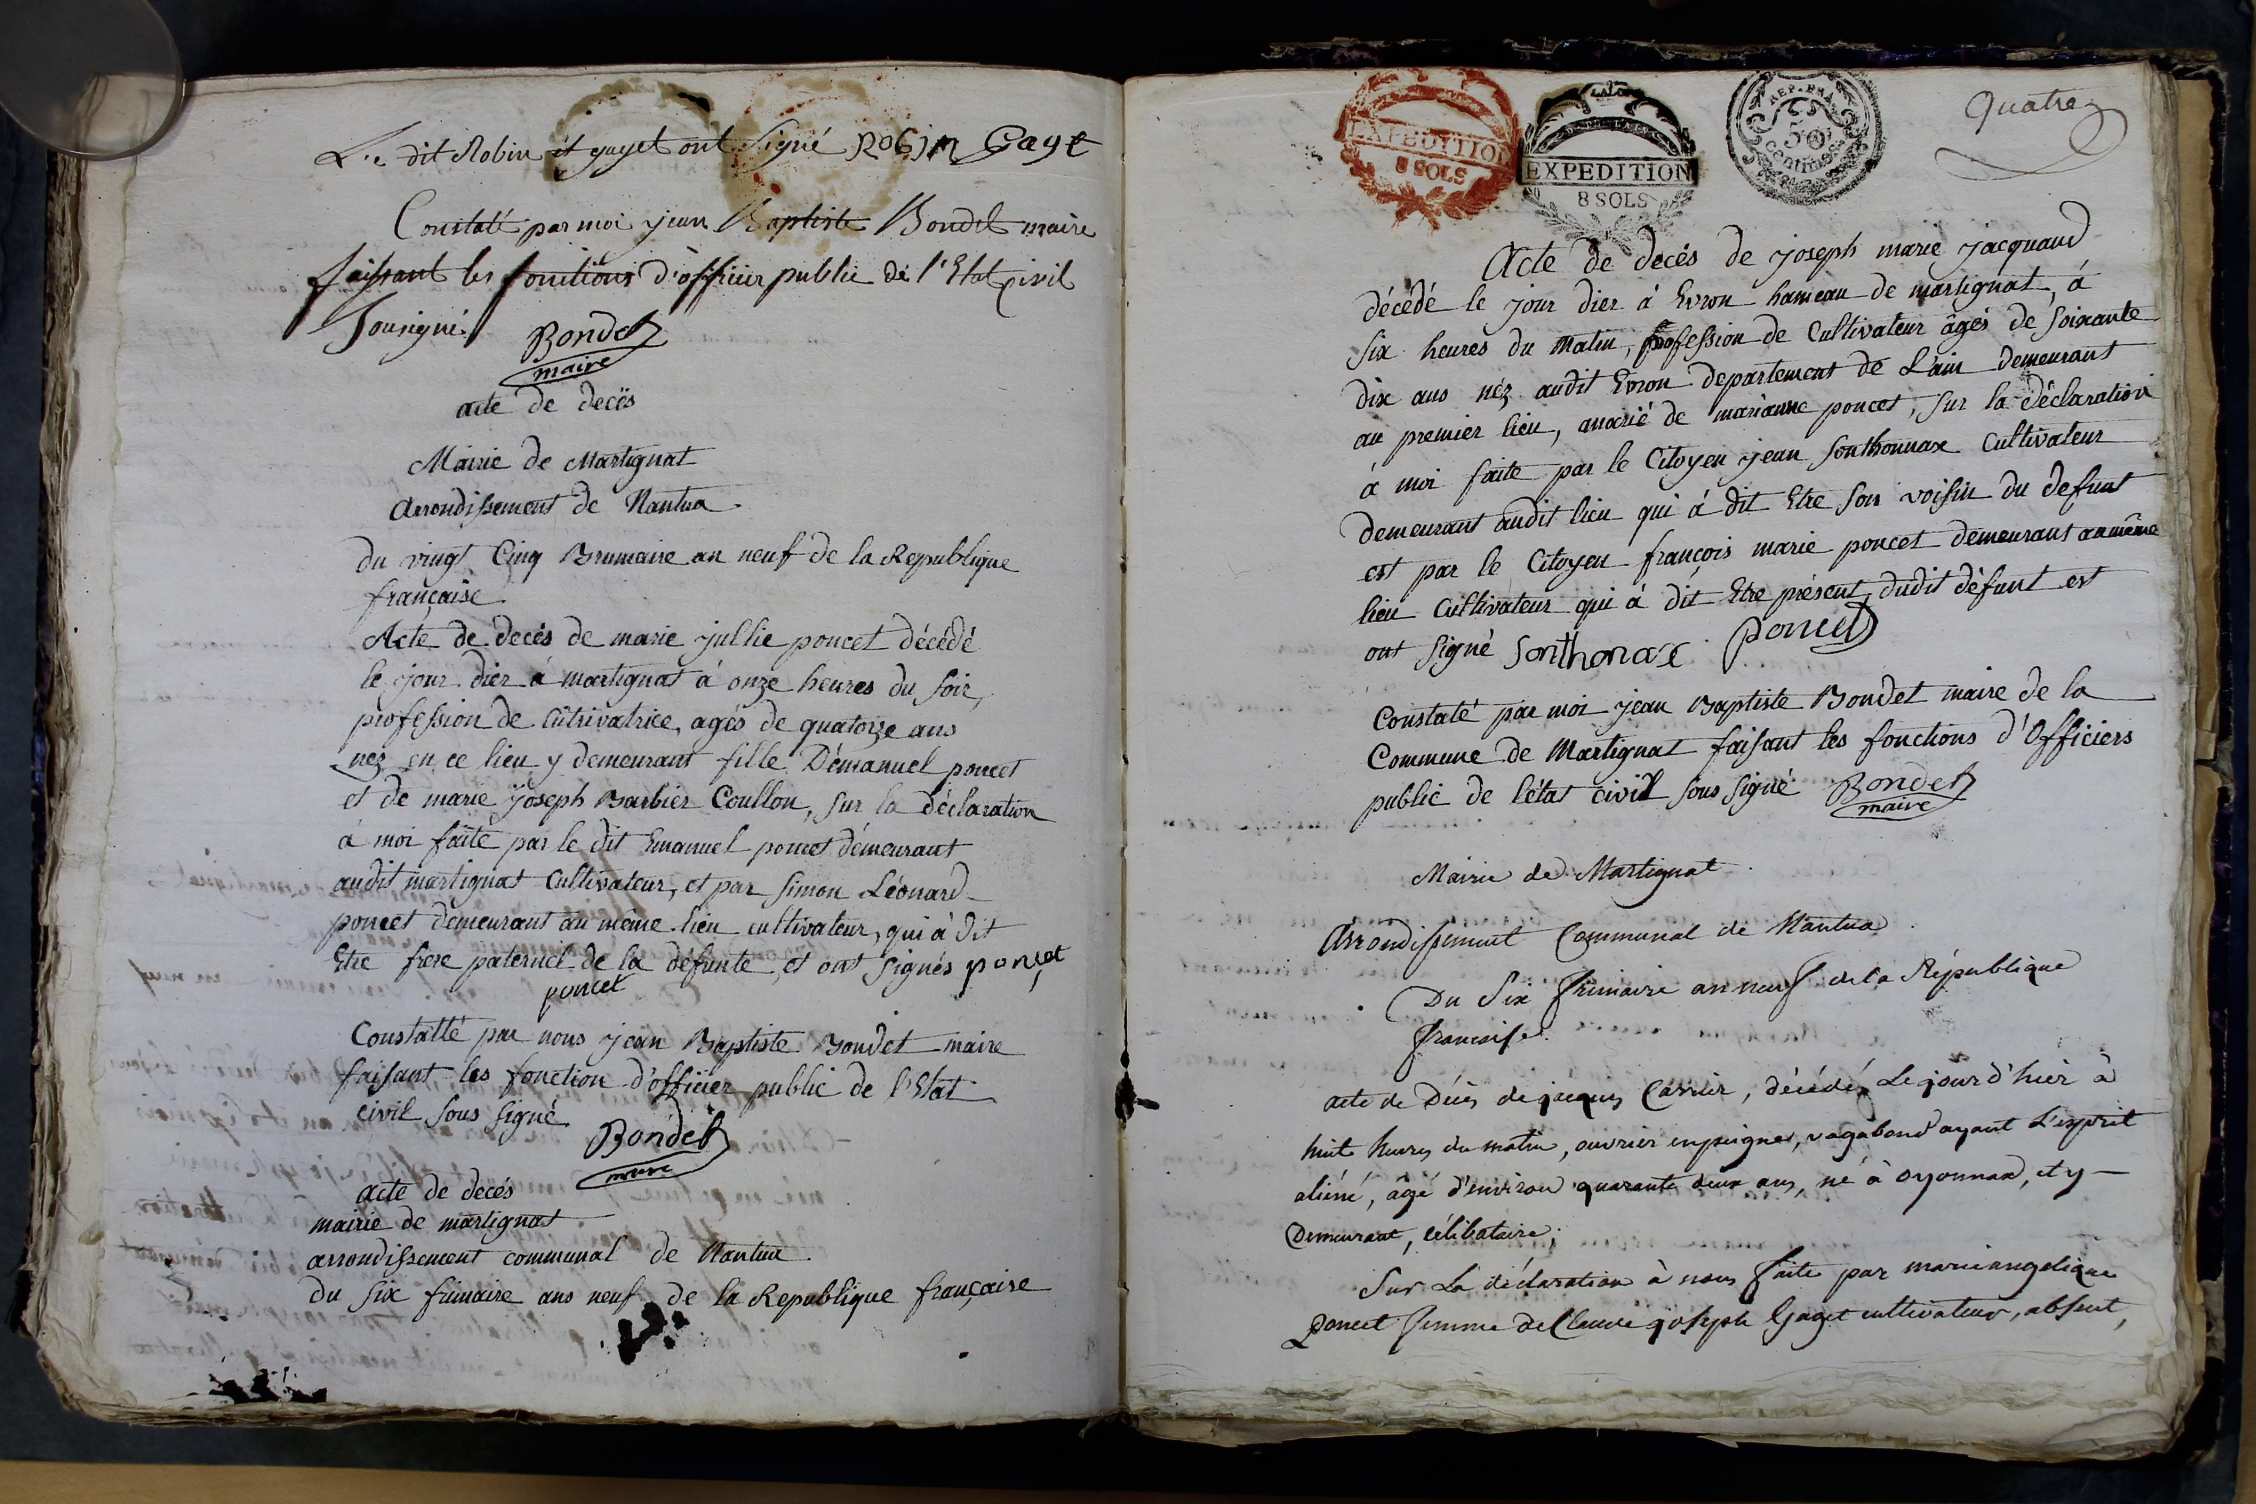 Le dit Robin et gayet ont signé Robin Gaye
Constaté par moi jean Baptiste Bondet maire
faissant les fonctions d'officier public de l'Etat civil
Sousigné Bondet
maire
acte de decès
Mairie de Martignat
Arrondissement de Nantua
du vingt Cinq Brumaire an neuf de la Republique
française
Acte de decès de marie jullie poncet décédé
le jour dier à martignat à onze heures du soir,
profession de cûtrivatrice, agés de quatorze ans
nez en ce lieu y demeurant fille Démanuel poncet
et de marie joseph Barbier Coullon, sur la déclaration
à moi faite par le dit Emanuel poncet démeurant
audit martignat Cultivateur, et par simon Léonard
poncet demeurant au même lieu cultivateur, qui à dit
Etre frere paternel de la défunte, et ont signés poncet
poncet
Constatté par nous jean Baptiste Bondet maire
faisant les fonction d'officier public de l'Etat
civil sous signé Bondet
maire
acte de decés
mairie de martignat
arrondissement communal de Nantua
du six frimaire ans neuf de la Republique française
EXPEDITION
8 SOLS
EXPEDITION
8 SOLS
REP. FRA.
50
centimes
quatre
Acte de decés de joseph marie jacquand
décédé le jour dier à Evron hameau de martignat, à
six heures du matin, profession de Cultivateur âgés de soixante
dix ans néz audit Evron departement de L'ain demeurant
au premier lieu, marié de marianne poncet, sur la déclaration
à moi faite par le Citoyen jean sonthonnax Cultivateur
demeurant audit lieu qui à dit Etre son voisin du defunt
et par le Citoyen françois marie poncet demeurant au même
lieu Cultivateur qui à dit Etre présent, dudit défunt et
ont signé Sonthonax poncet
Constaté par moi jean Baptiste Bondet maire de la
Commune de Martignat faisant les fonctions d'Officiers
public de l'état civil sous signé Bondet
maire
Mairie de Martignat
Arrondissement Communal de Nantua
Du Six frimaire an neuf de la République
francaise.
acte de Décès de jacques Carrier, décédé Le jour d'hier à
huit heures du matin, ouvrier en peignes, vagabond ayant L'esprit
aliéné, âgé d'environ quarante deux ans, né à oyonnax, et y
Demeurant, célibataire.
Sur La déclaration à nous faite par marie angelique
poncet femme de Claude joseph Gaget cultivateur, absent,